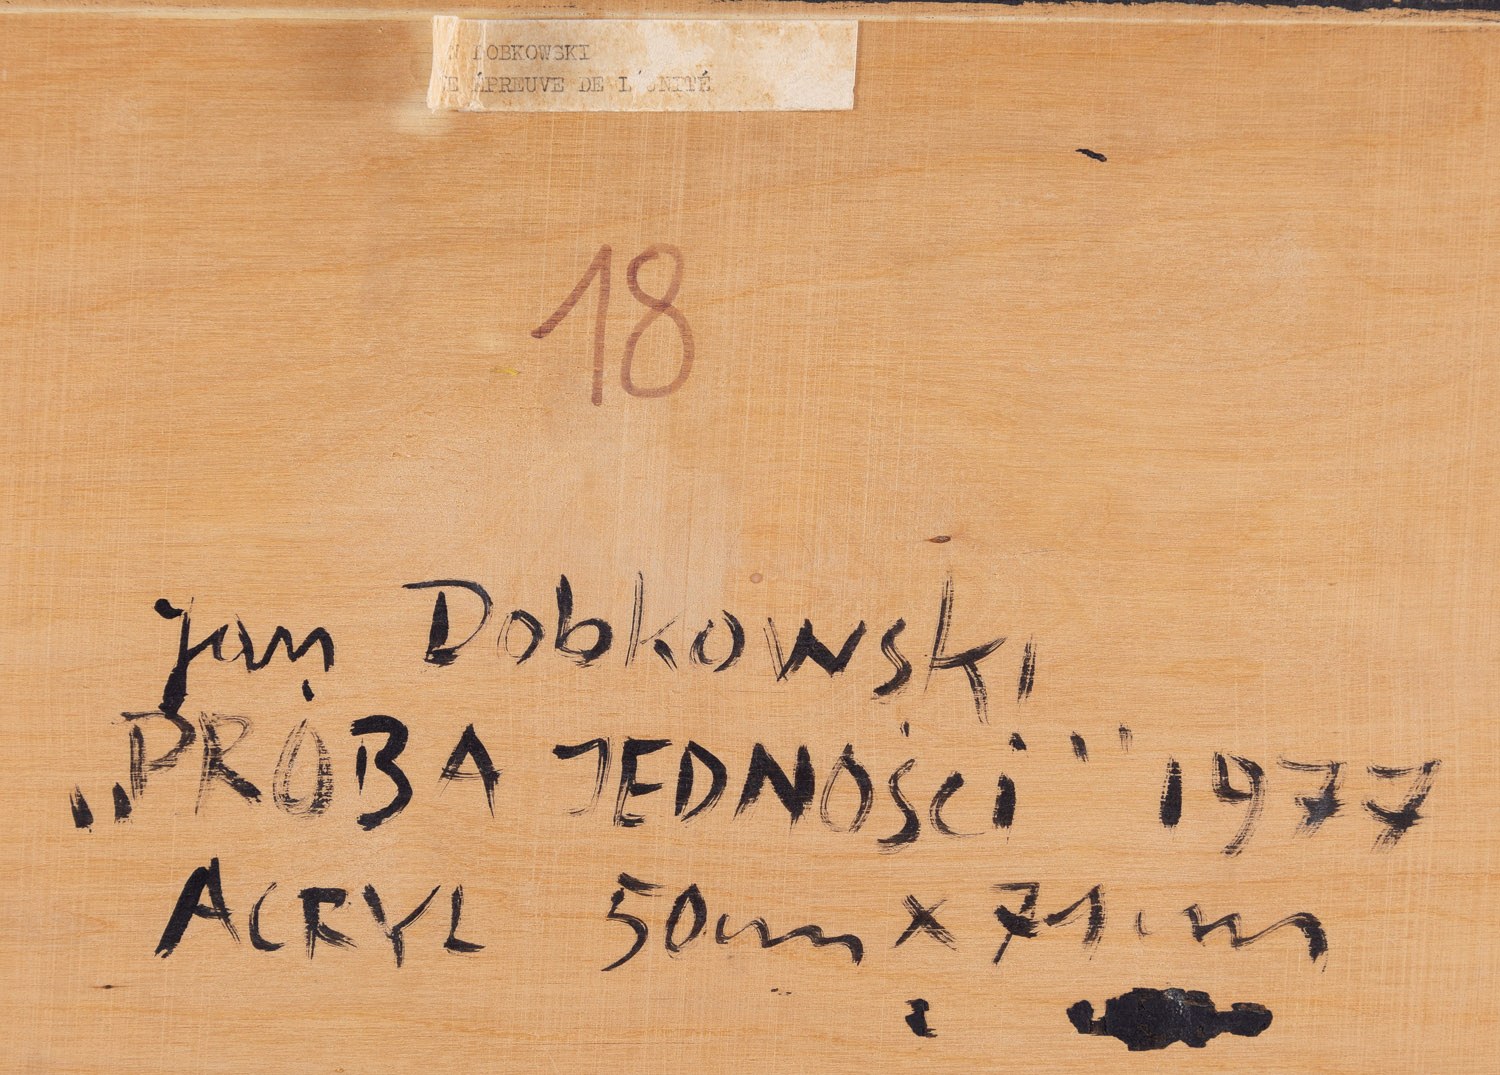 N DOBKOWSKI
E ÉPREUVE DE L'UNITÉ
18
Jan Dobkowski
„PRÓBA JEDNOŚCI" 1977
ACRYL 50cm x 71cm